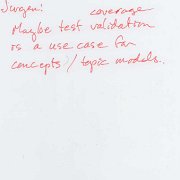 Jurgen: coverage
Maybe test validation
is a use case for
concepts / topic models.